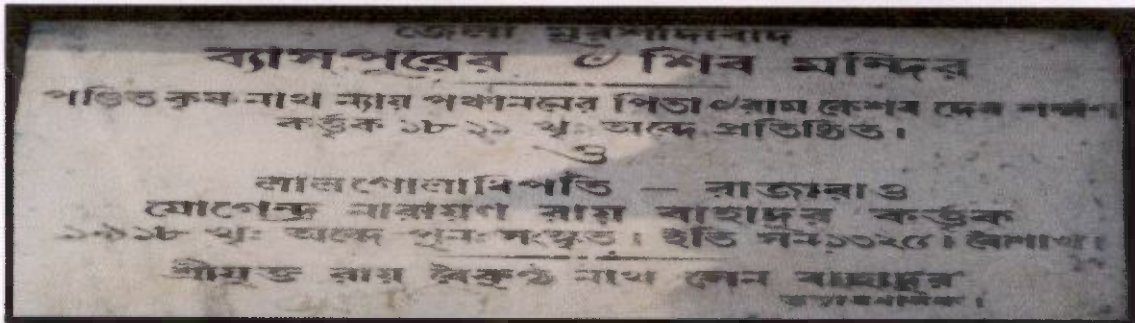 জেলা মুরশীদাবাদ
ব্যাসপুরের ৺ শিব মন্দির
পণ্ডিত কৃষ্ণ নাথ ন্যায় পঞ্চাননের পিতা ৺রাম কেশব দেব শর্ম্মণ
কর্ত্তৃক ১৮২১ খৃঃ অব্দে প্রতিষ্ঠিত।
ও
লালগোলাধিপতি – রাজারাও
যোগেন্দ্র নারায়ণ রায় বাহাদুর কর্ত্তৃক
১৯১৮ খৃঃ অব্দে পুনঃ সংস্কৃত। ইতি সন ১৩২৫। বৈশাখ।
শ্রীযুক্ত রায় বৈকুণ্ঠ নাথ সেন বাহাদুর